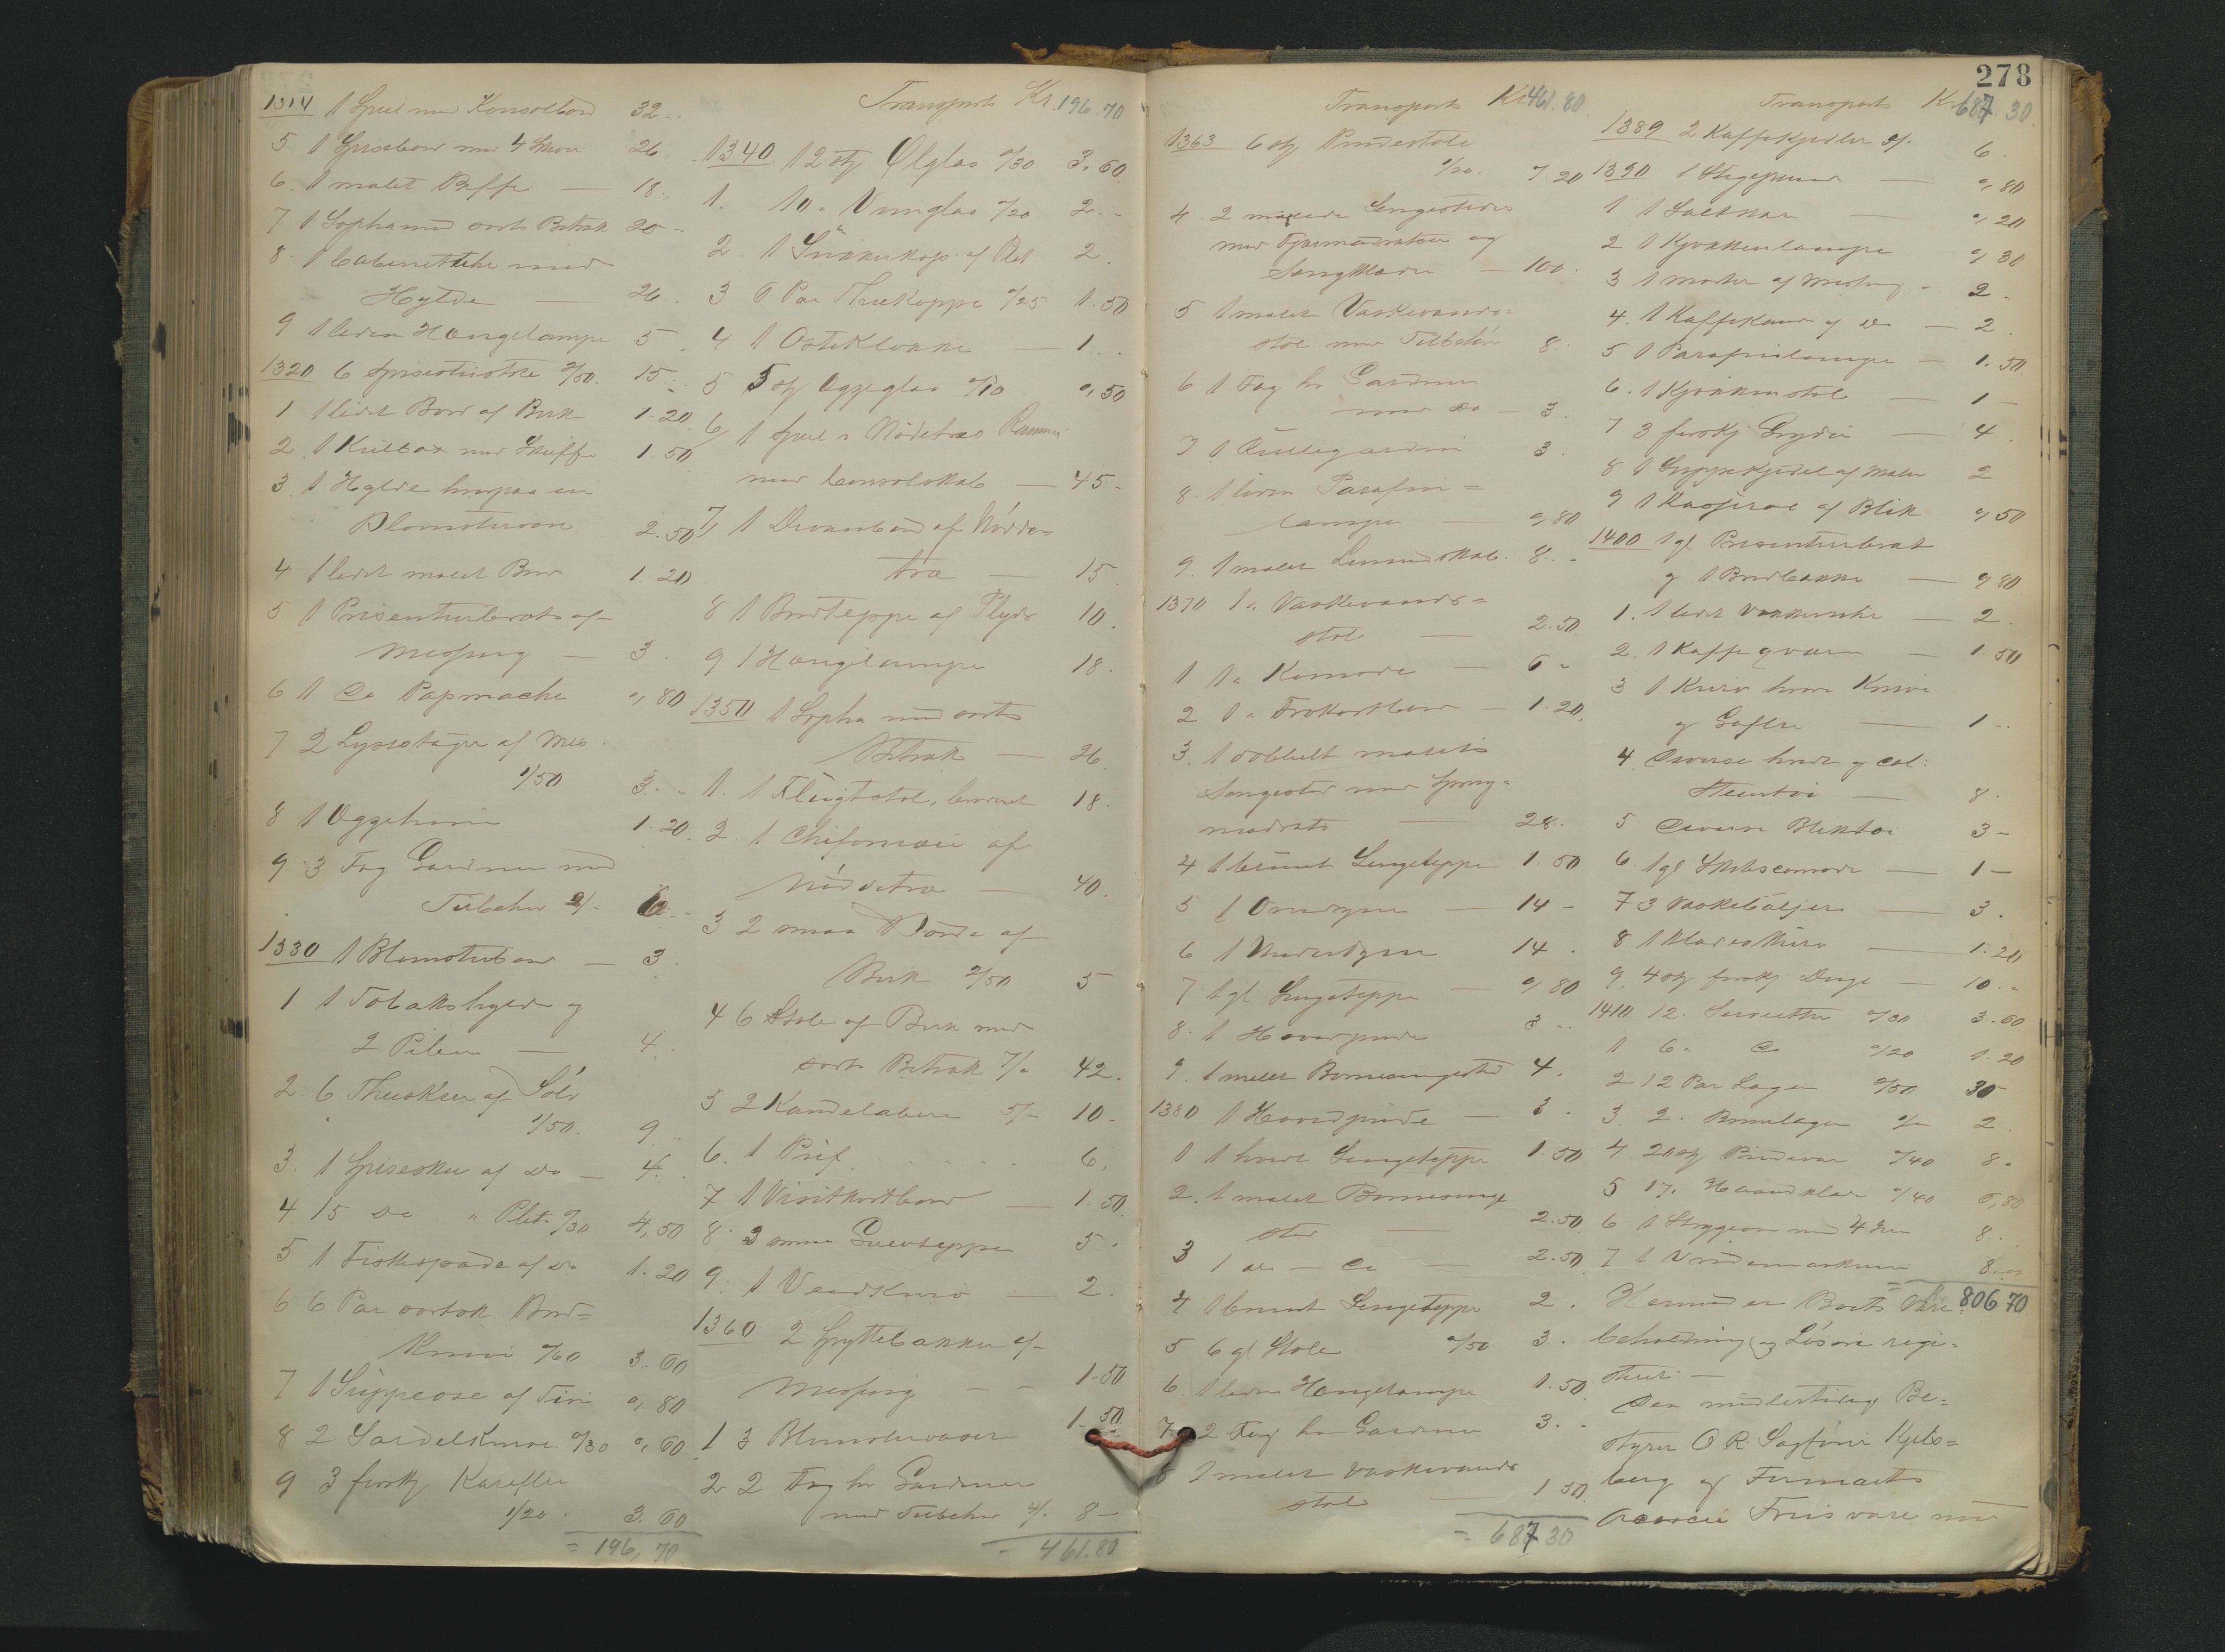 1314 1 Speil med Konsolbord 32 -
5 1 Spisebord med 4 26 -
6 1 malet Buffe — 18 -
7 1 Sopha med sort Betræk 20 -
8 1 med
Hylde — 26 -
9 1 liden Hængelampe 5 -
1320 6 Spisestuestole 2/50 15 -
1 1 lidet Bord af Birk 1.20
2 1 Kulbox med Skuffe 1.50
3 1 Hylde hvorpaa en
Blomstervase 2.50
4 1 lidet malet Bord 1.20
5 1 Presenteerbret af
Messing — 3 -
6 1 Do Papmache 0,80
7 2 Lysestager af Mes
1/50 3 -
8 1 Eggehøne 1.20
9 3 Fag Gardiner med
Tilbehør 2/- 6 -
1330 1 Blomsterbord — 3 -
1 1 Tobakshylde og
2 Piber — 4 -
2 6 Theskeer af Sølv
1/50 9 -
3 1 Spiseske af Do — 4 -
4 15 Do " Plet 0/30 4,50
5 1 Fiskespade af Do 1.20
6 6 Par sortsk. Bord=
Knive 0/60 3.60
7 1 Suppeøse af Tin 0,80
8 2 Sardelknive 0/30 0,60
9 3 forskj Karafler
1/20 3.60
= 196,70
Transport Kr. 196.70
1340 12 stk Ølglas 0/30 3.60
1 10 " Vinglas 0/20 2 -
2 1 Sukkerkop af Plet 2 -
3 6 Par Theekoppe 0/25 1.50
4 1 Osteklokke — 1 -
5 5 stk Eggeglas 0/10 0,50
6 1 Speil i Nødetræs Ramme
med Consolskab — 45 -
7 1 Divanbord af Nødde=
træ — 15 -
8 1 Bordteppe af Plyds 10 -
9 1 Hængelampe 18 -
1350 1 Sopha med sort
Betræk — 26 -
1 1 Flugtstol, broderet 18 -
2 1 Chifonniere af
Nøddetræ — 40 -
3 2 smaa Borde af
Birk 2/50 5
4 6 Stole af Birk med
sort Betræk 7/- 42 -
5 2 Kandelabere 5/- 10 -
6 1 6 -
7 1 Visitkortbord — 1.50
8 3 smaa Gulvtepper 5 -
9 1 Vedkurv — 2 -
1360 2 Spyttebakker af
Messing — 1.50
1 3 Blomstervaser 1.50
2 2 Fag hv Gardiner
med Tilbehør 4/- 8 -
= 461.80
Transport Kr 461.80
1363 6 stk Pindestole
1/20 7.20
4 2 malede Sengesteder
med Fjærmadratser og
Sengklæder — 100 -
5 1 malet Vaskevands=
stol med Tilbehør 8 -
6 1 Fag hv Gardiner
med Do — 3 -
7 1 Rullegardin 3 -
8 1 liden Parafin=
lampe — 0,80
9 1 malet Linnedskab 8 -
1370 1 " Vaskevands=
stol — 2.50
1 1 " Komode — 6 -
2 1 " Frokostbord — 1.20
3 1 dobbelt malet
Sengested med Spring=
madrats — 28 -
4 1 brunt Sengeteppe 1.50
5 1 Overdyne — 14 -
6 1 Underdyne 14 -
7 1 gl Sengeteppe — 0,80
8 1 Hovedpude 3 -
9 1 malet Børnesengested 4 -
1380 1 Hovedpude — 3 -
1 1 hvidt Sengeteppe 1.50
2 1 malet Børnesenge
sted — 2.50
3 1 do — Do — 2.50
4 1 brunt Sengeteppe 2 -
5 6 gl Stole 0/50 3 -
6 1 liden Hængelampe 1.50
7 2 Fag hv Gardiner 3 -
8 1 malet Vaskevands
stol — 1.50
= 687.30
278
Transport Kr 687.30
1389 2 Kaffekjedler 3/- 6 -
1390 1 Stegepande — 0,80
1 1 Saltkar — 0,20
2 1 Kjøkkenlampe 0,30
3 1 Morter af Messing - 2 -
4 1 Kaffekande af Do — 2 -
5 1 Parafinlampe — 1.50
6 1 Kjøkkenstol — 1 -
7 3 forskj Gryder — 4 -
8 1 Suppekjedel af Malm 2
9 1 Kasserol af Blik 0,50
1400 1 gl Presenteerbret
og 1 Brødbakke — 0,80
1 1 lidet Vækkeruhr — 2 -
2 1 Kaffeqværn — 1.50
3 1 Kurv hvori Knive
og Gafler — 1 -
4 Diverse hvidt og col.
Stentøi — 8 -
5 Diverse Bliktøi 3 -
6 1 gl Skabscomode — 1 -
7 3 Vaskebaljer — 3 -
8 1 Klædeskurv — 1.20
9 4 stk forskj Duge — 10 -
1410 12 " Servietter 0/30 3.60
1 6 " Do 0/20 1.20
2 12 Par Lagen 2/50 30
3 2 " Børnelagen 1/- 2 -
4 20 stk Pudevar 0/40 8 -
5 17 " Haandklæder 0/40 6,80
6 1 Strygeovn med 4 8 -
7 1 Vridemaskine 8 -
= 806.70
Hermed er Boets Vare=
beholdning og Løsøre regi=
streret. —
Den midlertidige Be=
styrer O R Sagfører Kjels=
berg og Firmaets
Frus vare med